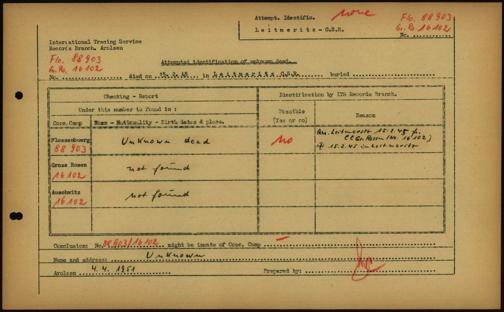 Attempt. Identific. none
Leitmeritz - C.S.R.
Flo. 88 903
Gr. Ro. 16 102
No.
International Tracing Service
Records Branch, Arolsen
Flo. 88 903
Gr. Ro. 16 102
Attempted identification of unknown dead.
No. died on 15.2.45 in Leitmeritz C.S.R. buried
Checking - Report
Identification by ITS Records Branch.
Under this number to found in :
Possible (Yes or no)
Reason
Conc.Camp Name - Nationality - Birth dates & place.
Flossenburg 88 903 Unknown dead no
Leitmeritz 15.2.45 fr. CC Gr. Rosen (No. 16 102)
† 15.2.45 in Leitmeritz
Gross Rosen 16 102 not found
Auschwitz 16 102 not found
Conclusion: No. 88 903/16 102 might be inmate of Conc. Camp —
Name and address: Unknown
Arolsen 4. 4. 1951 Prepared by: